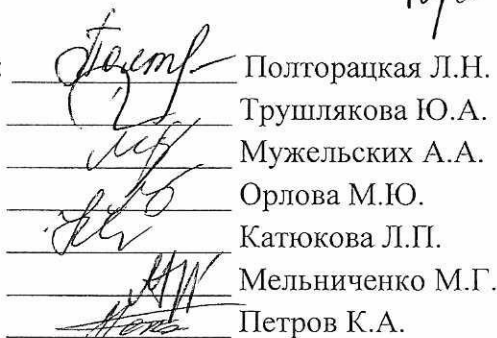 Полторацкая Л.Н.
Трушлякова Ю.А.
Мужельских А.А.
Орлова М.Ю.
Катюкова Л.П.
Мельниченко М.Г.
Петров К.А.